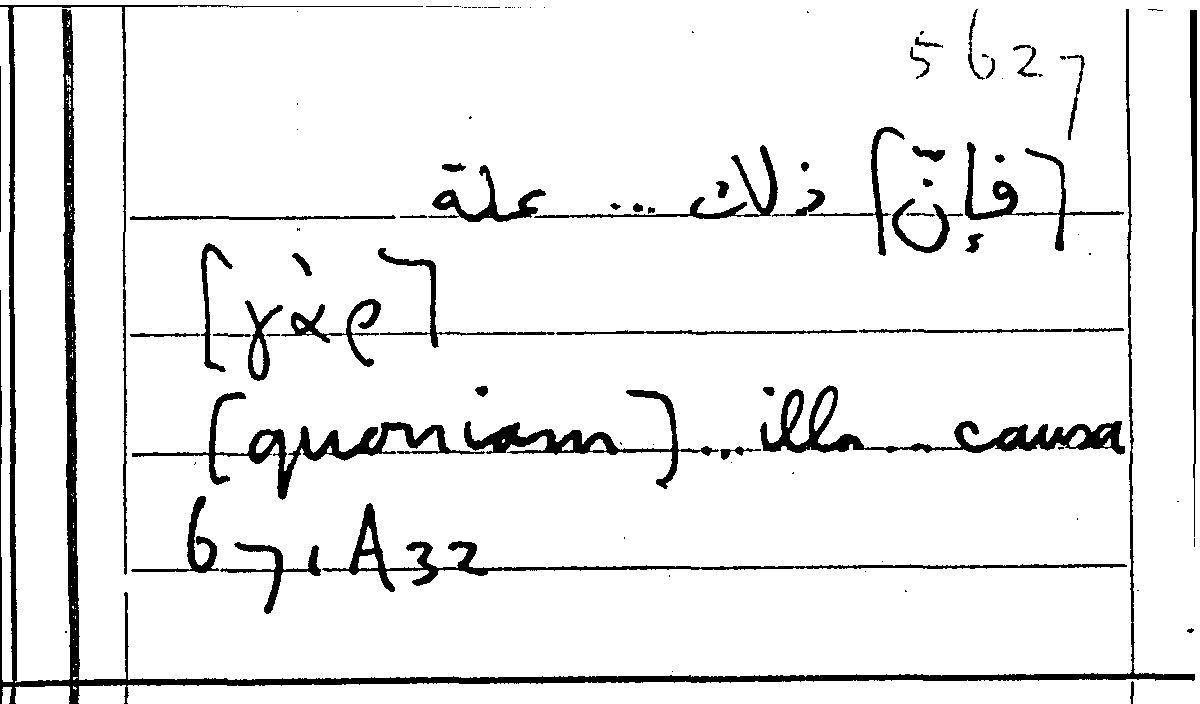 5627
[فإنّ] ذلك ... علّة
[γὰρ]
[quoniam] ... illa ... causa
67, A32